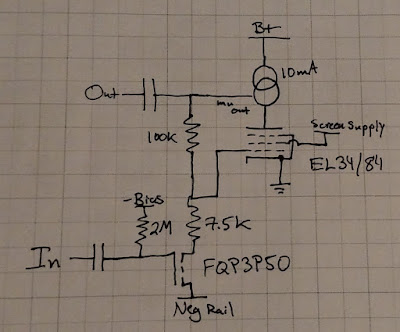 B+
10mA
Out
mu
out
100K
Screen Supply
EL34/84
-Bias
2M
7.5K
In
FQP3P50
Neg Rail